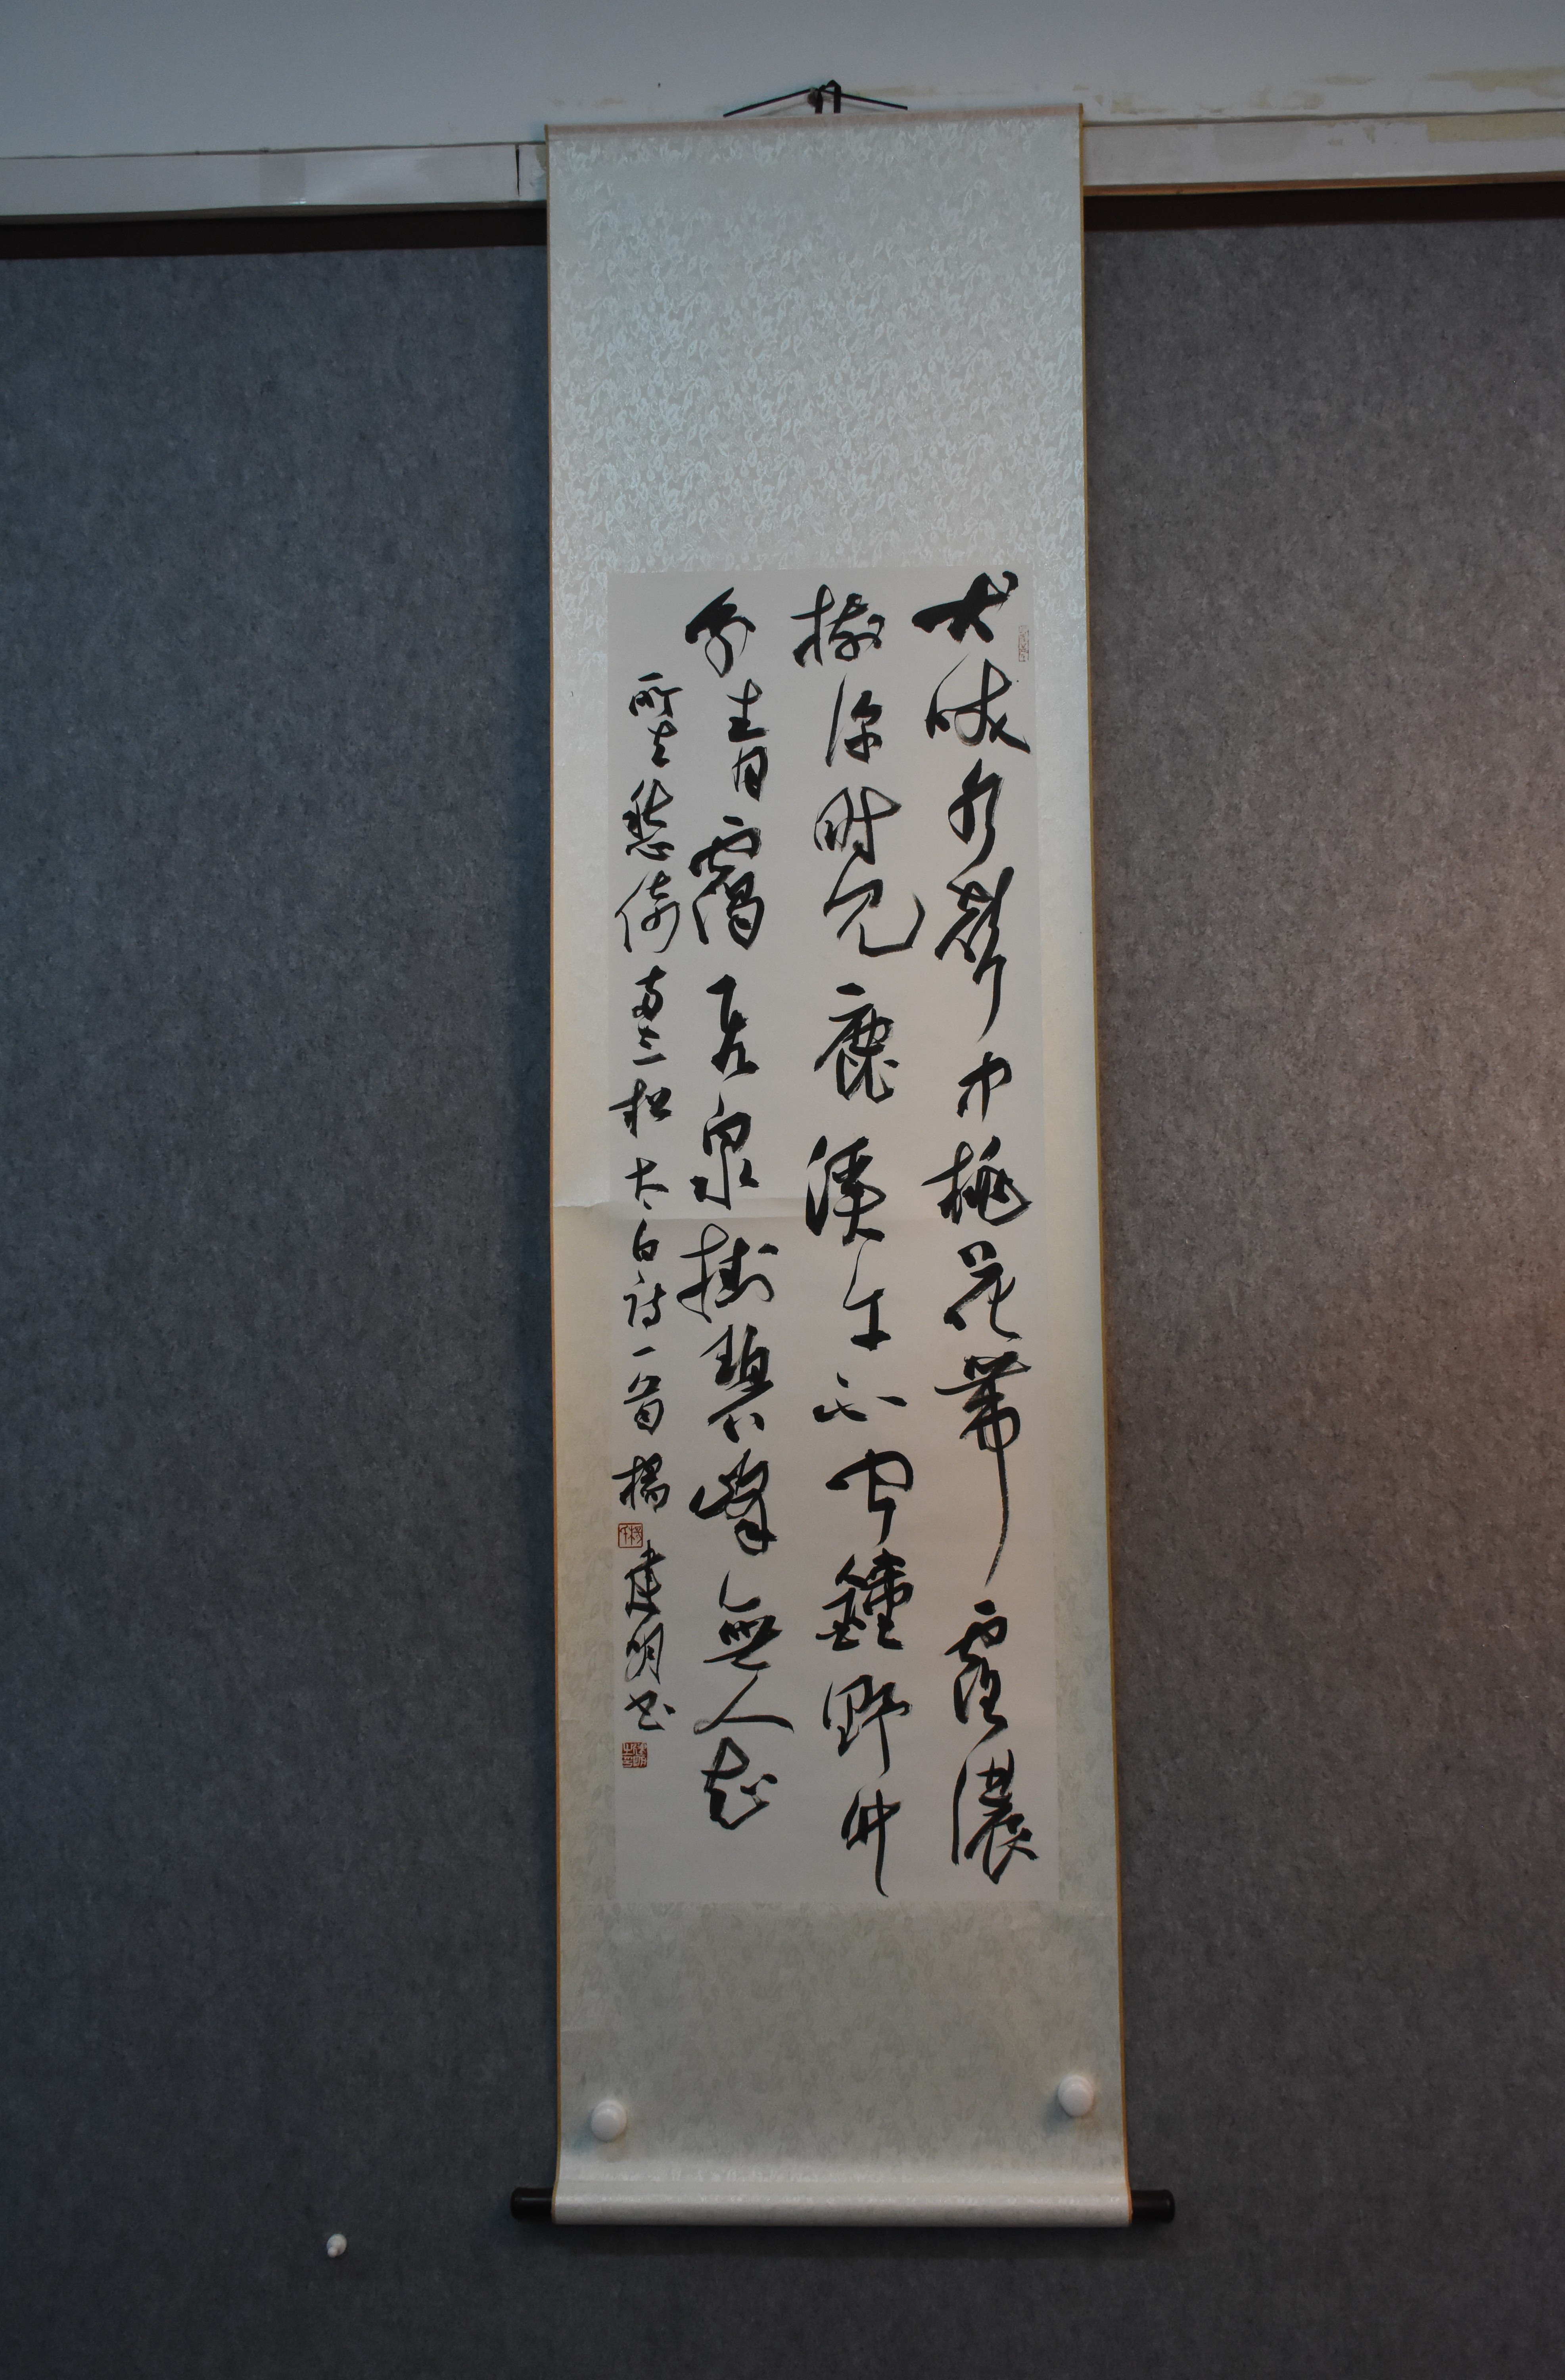 犬吠水聲中桃花帶露濃
樹深時見鹿溪午不聞鐘野竹
分青靄飛泉掛碧峰無人知
所去愁倚兩三松太白詩一首楊建明书